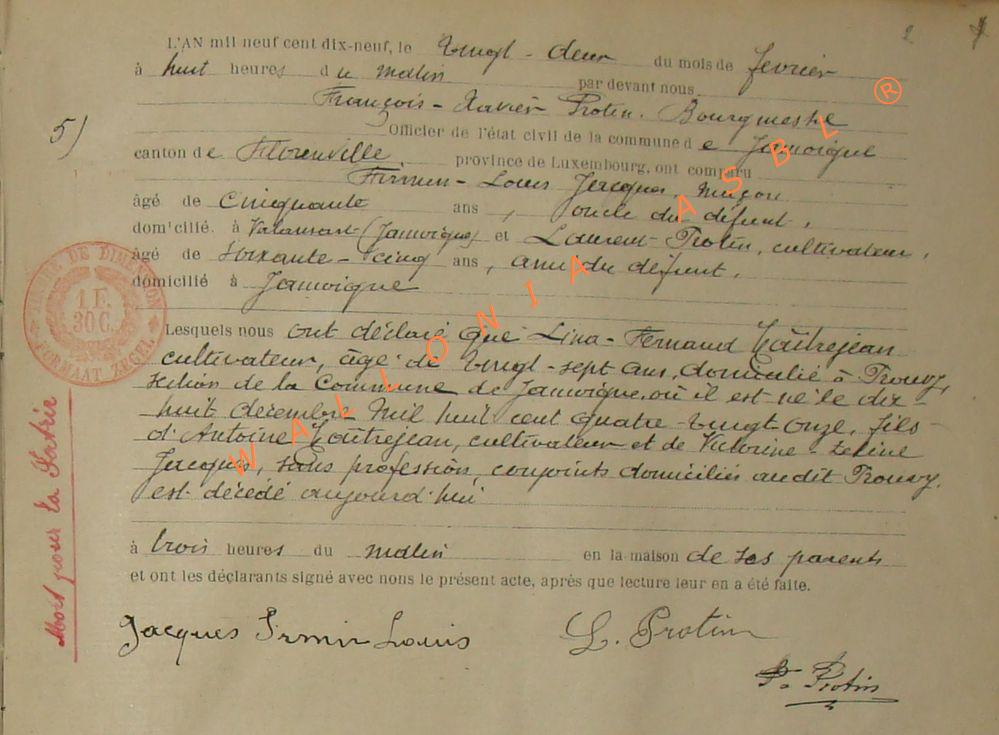 2
5)
L'AN mil neuf cent dix-neuf, le Vingt-deux du mois de février
à huit heures du matin par devant nous
François-Xavier Protin, Bourgmestre
Officier de l'état civil de la commune de Jamoigne
canton de Florenville, province de Luxembourg, ont comparu
Firmin-Louis Jacques, maçon
âgé de Cinquante ans, oncle du défunt,
domicilié à Valansart (Jamoigne) et Laurent Protin, cultivateur,
âgé de soixante-cinq ans, ami du défunt,
domicilié à Jamoigne
Lesquels nous ont déclaré que Lina-Fernand
cultivateur, âgé de vingt-sept ans, domicilié à Prouvy,
section de la Commune de Jamoigne, où il est né le dix
huit décembre mil huit cent quatre-vingt onze, fils
d'Antoine cultivateur et de Victorine-
Jacques, sans profession, conjoints domiciliés audit Prouvy,
est décédé aujourd'hui
à trois heures du matin en la maison de ses parents
et ont les déclarants signé avec nous le présent acte, après que lecture leur en a été faite.
Jacques Firmin Louis L. Protin
Protin
Mort pour la Patrie
TIMBRE DE DIMENSION
1 F.
30 C.
FORMAAT ZEGEL
WALLONIA ASBL ®